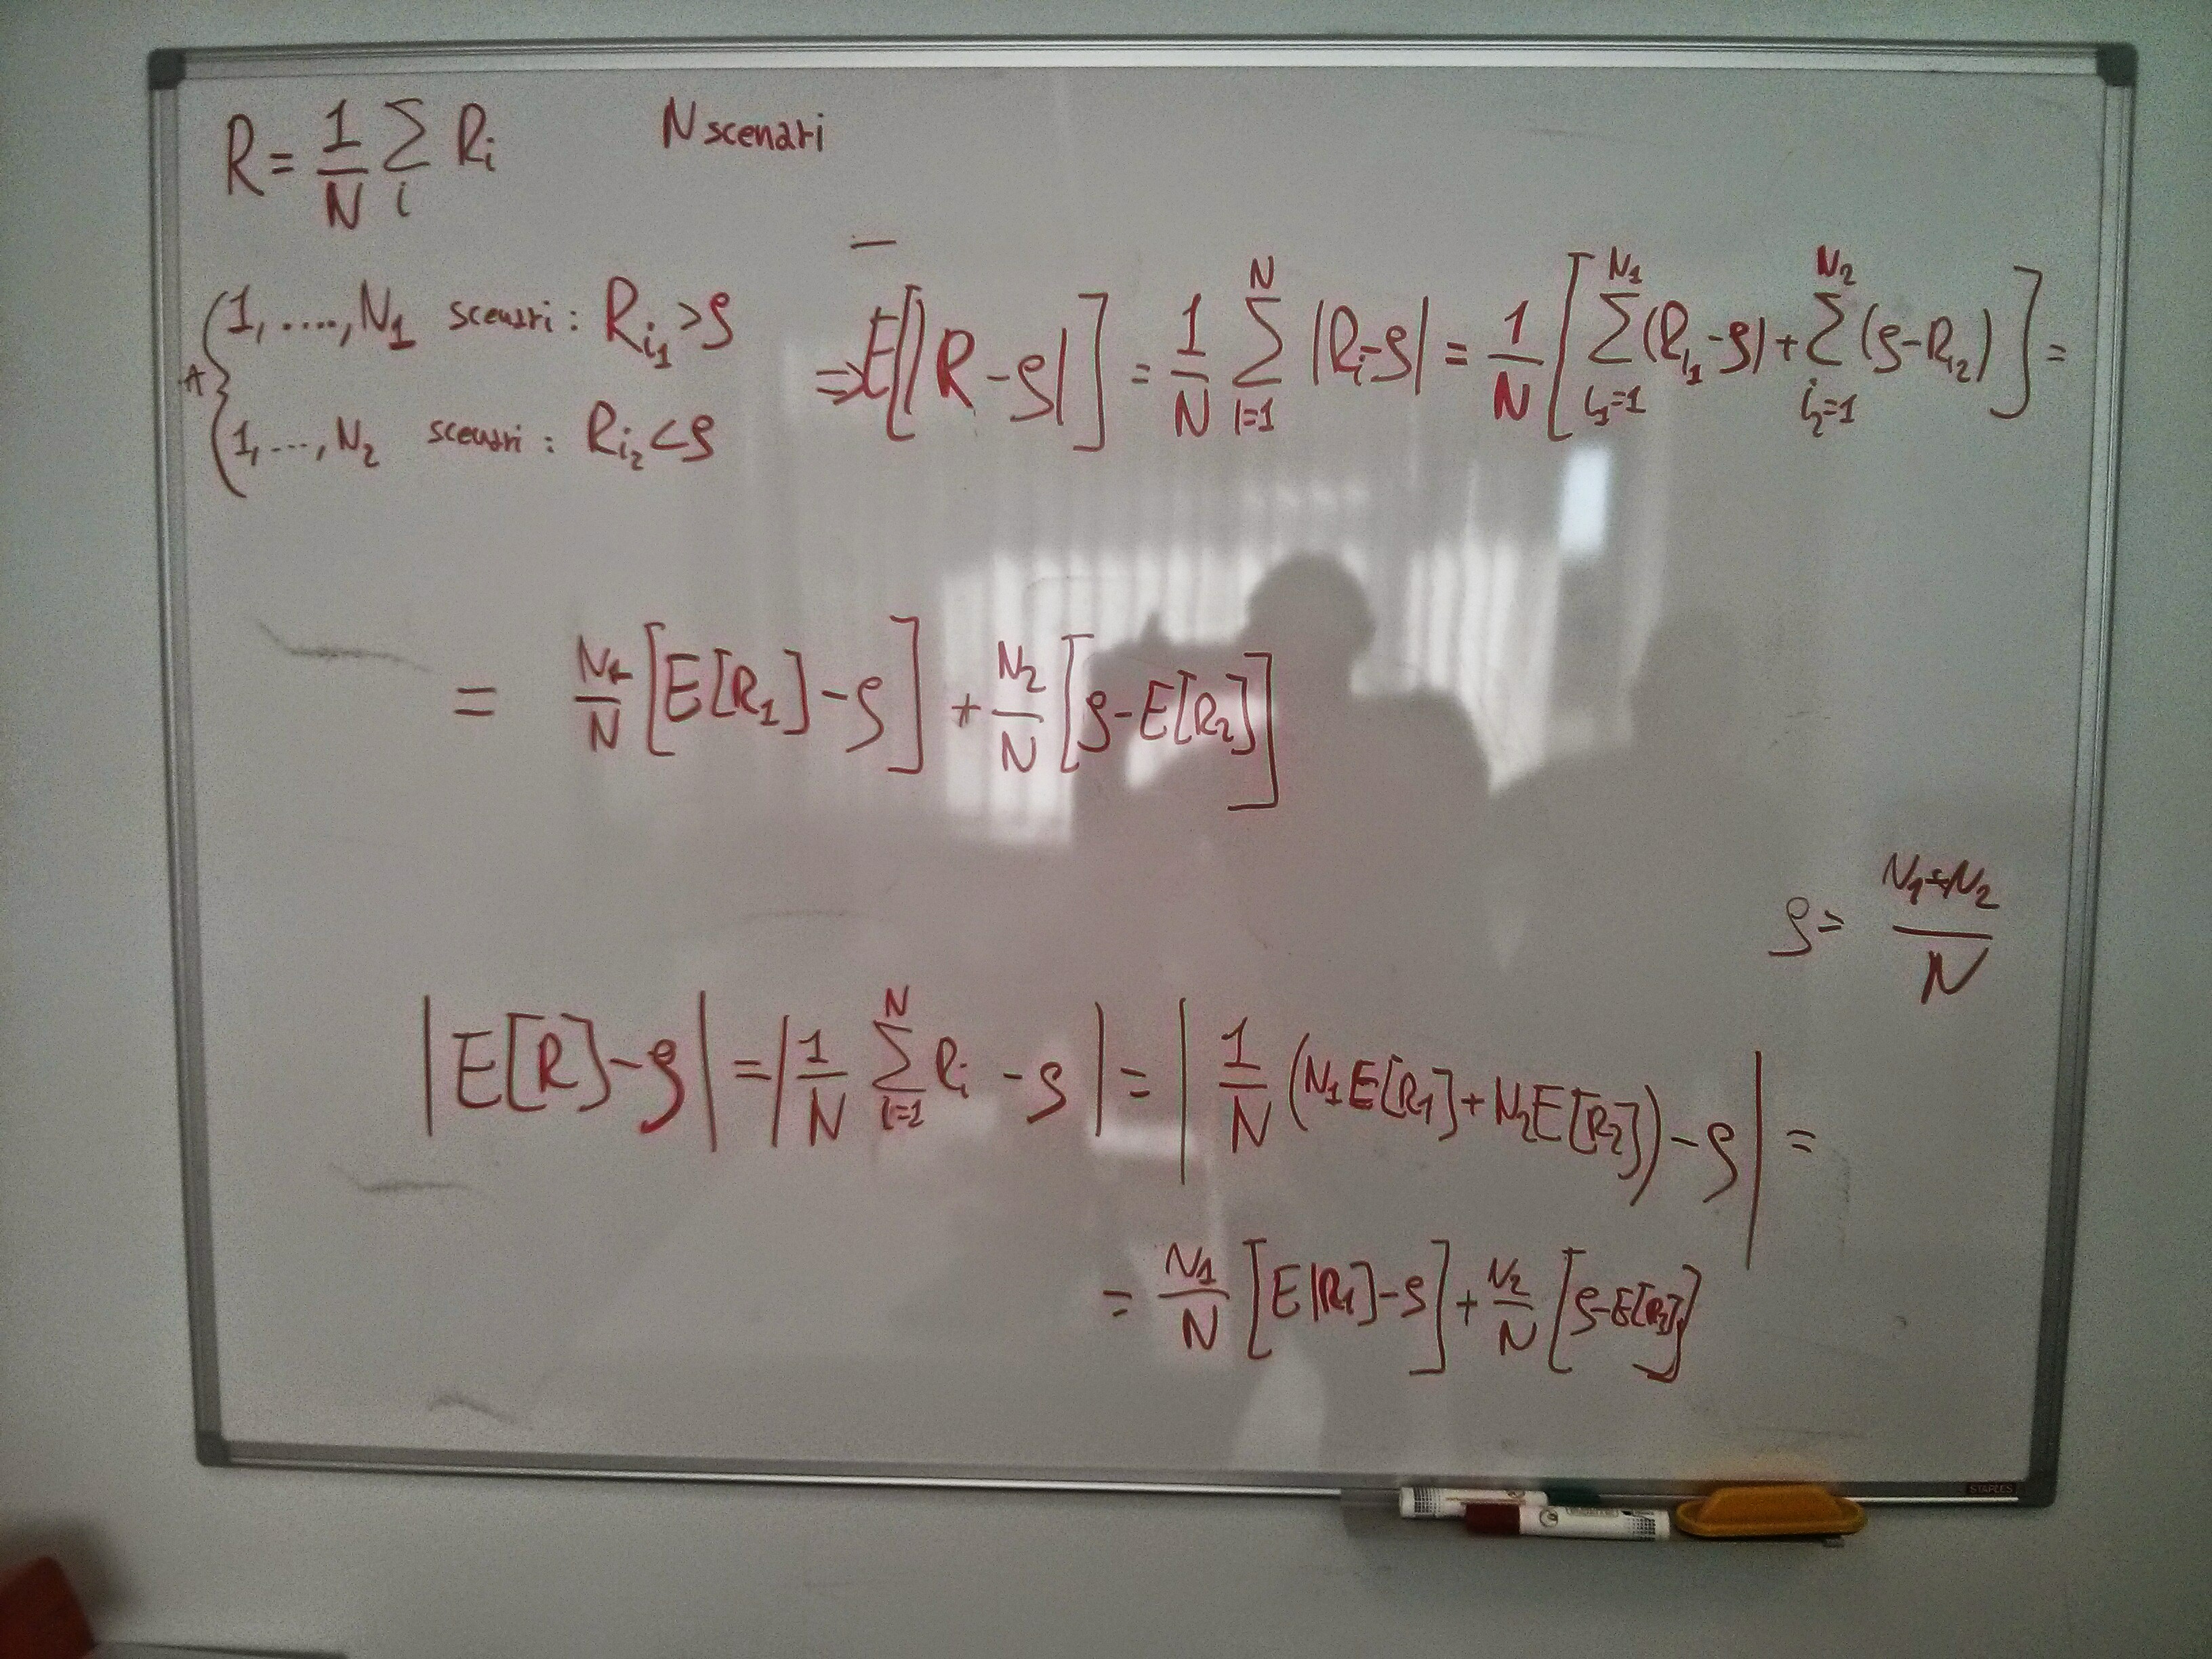 R = 1/N Σ_i R_i    N scenari
A { 1, ...., N_1 scenari : R_{i_1} > ρ
1, ..., N_2 scenari : R_{i_2} < ρ
⇒ E[|R - ρ|] = 1/N Σ_{i=1}^{N} |R_i - ρ| = 1/N [ Σ_{i_1=1}^{N_1} (R_{i_1} - ρ) + Σ_{i_2=1}^{N_2} (ρ - R_{i_2}) ] =
= N_1/N [E[R_1] - ρ] + N_2/N [ρ - E[R_2]]
ρ = N_1+N_2 / N
|E[R] - ρ| = | 1/N Σ_{i=1}^{N} R_i - ρ | = | 1/N (N_1 E[R_1] + N_2 E[R_2]) - ρ | =
= N_1/N [E[R_1] - ρ] + N_2/N [ρ - E[R_2]]
STAPLES